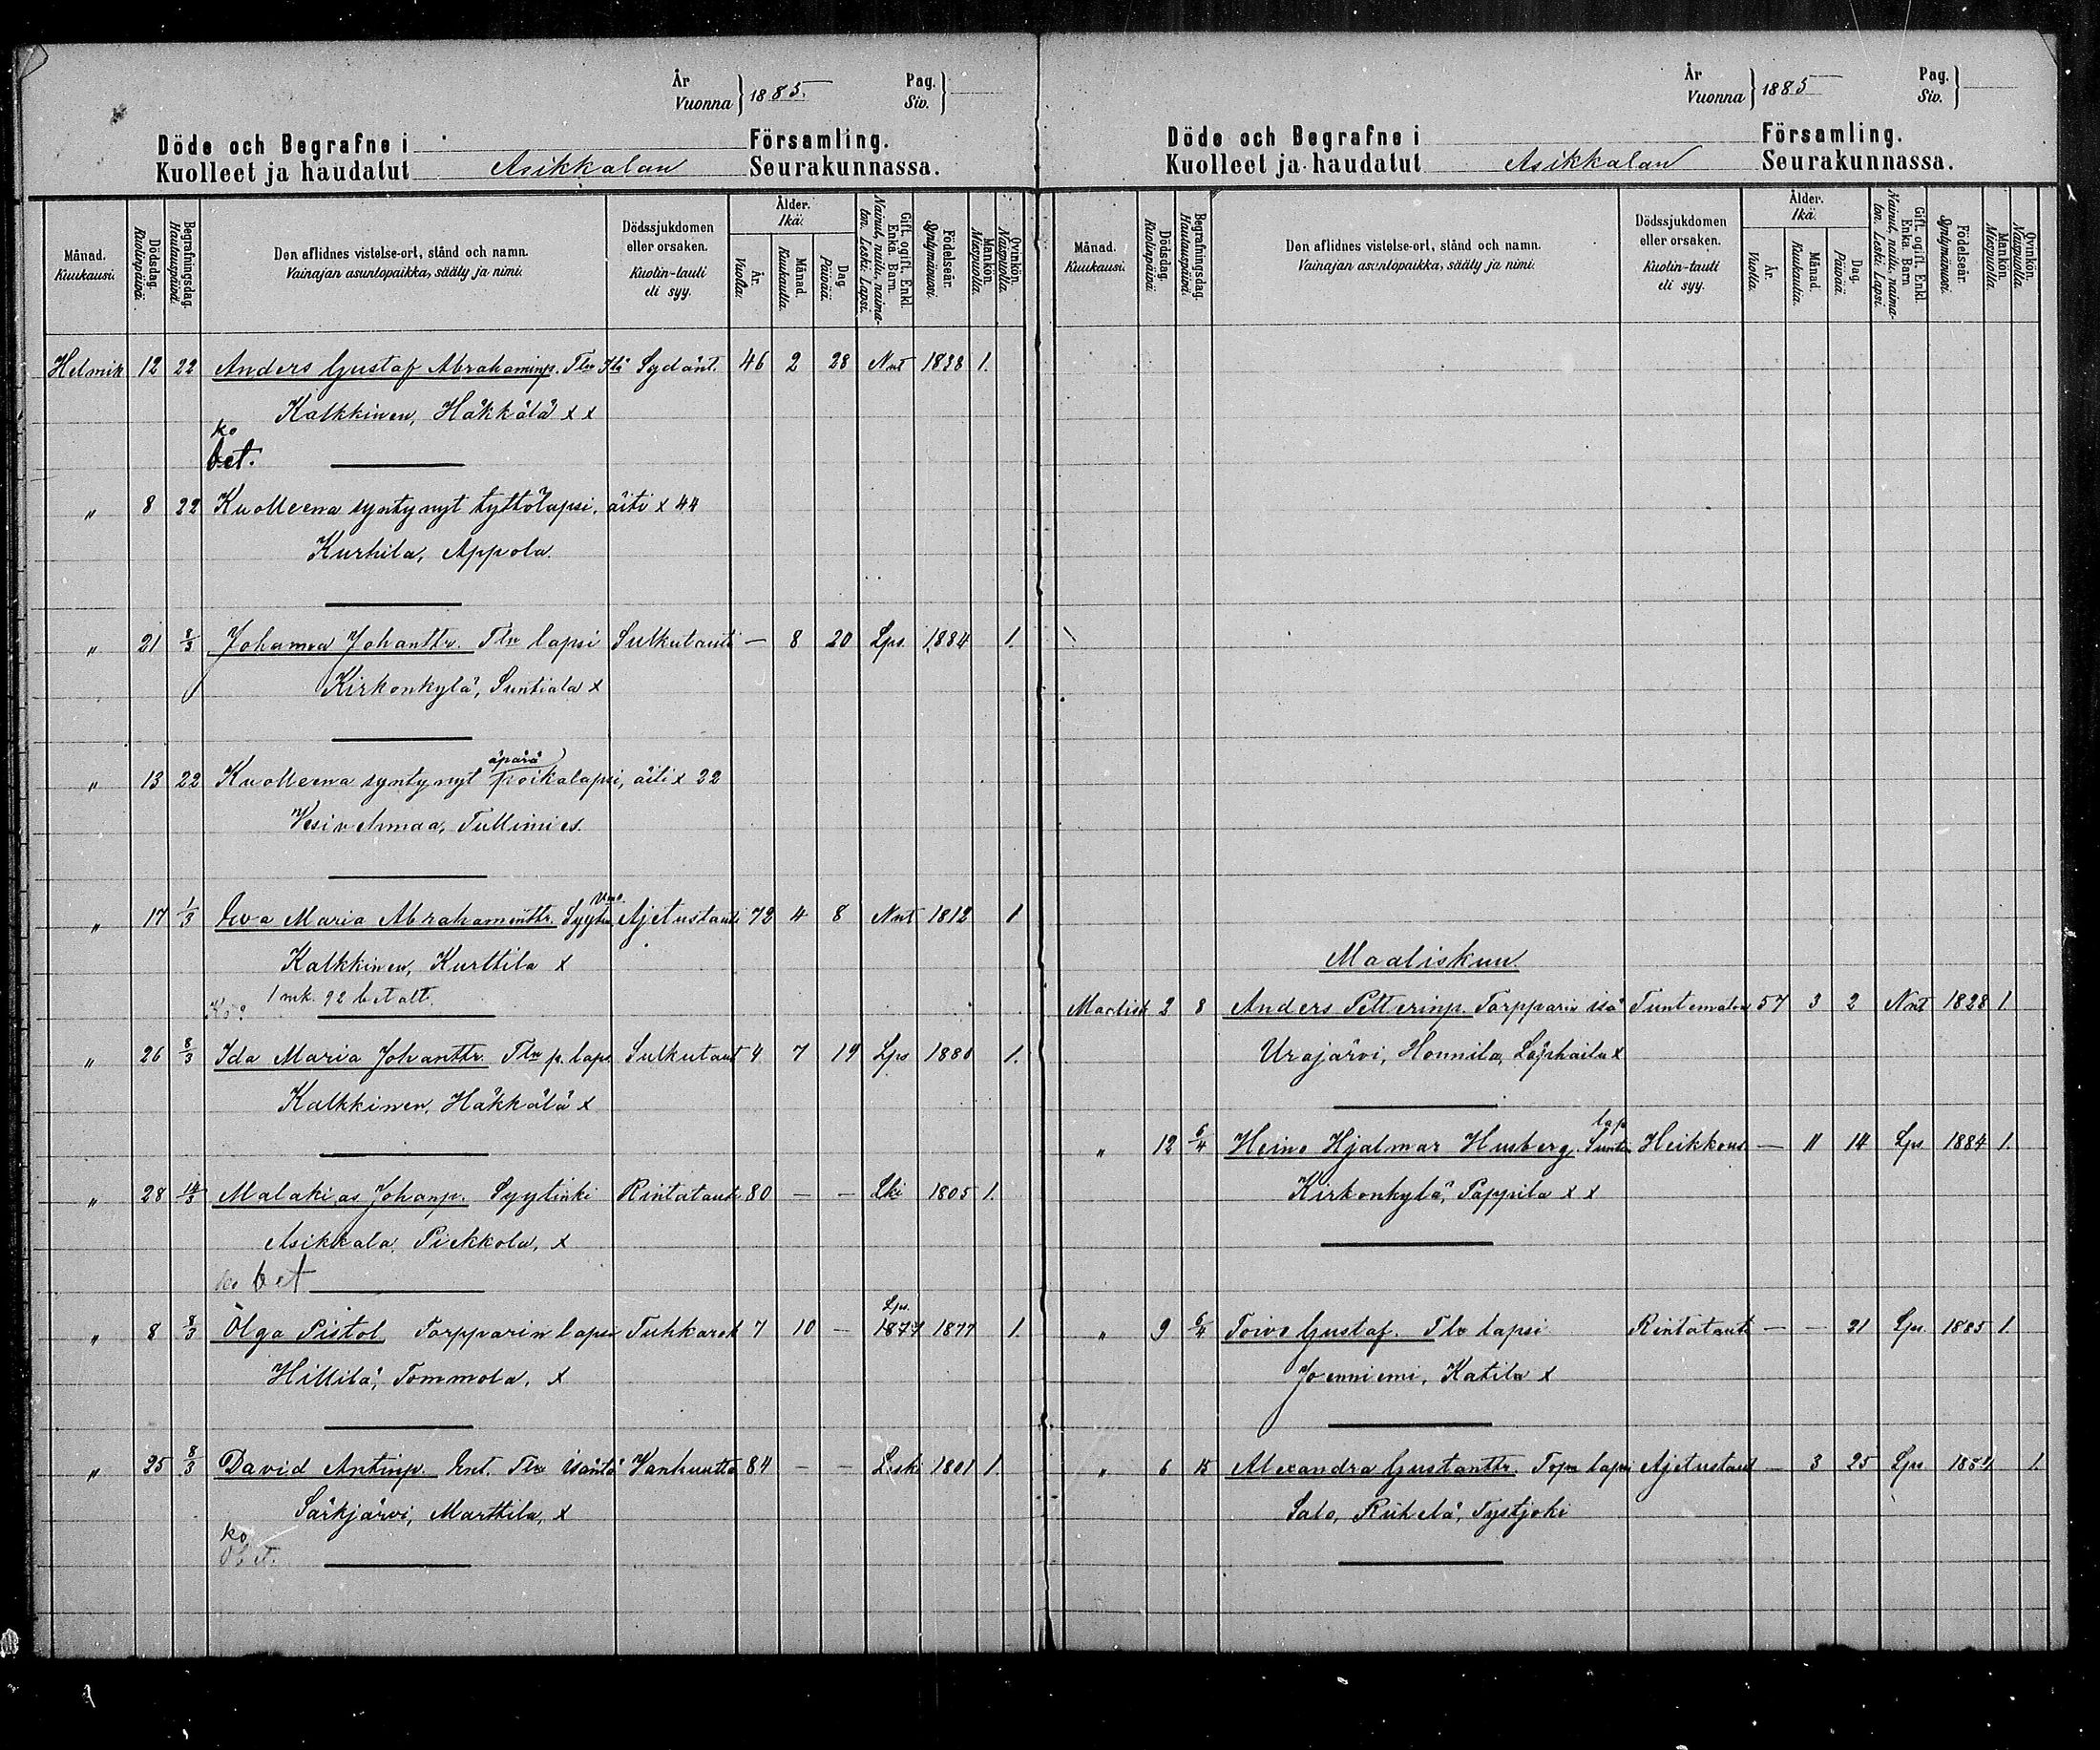 År
Vuonna } 1885.
Pag.
Siv. }
Döde och Begrafne i Församling.
Kuolleet ja haudatut Asikkalan Seurakunnassa.
Månad. Kuukausi.
Dödsdag. Kuolinpäivä.
Begrafningsdag. Hautauspäivä.
Den aflidnes vistelse-ort, stånd och namn.
Vainajan asuntopaikka, sääty ja nimi.
Dödssjukdomen eller orsaken.
Kuolin-tauti eli syy.
Ålder. Ikä.
År. Vuotta.
Månad. Kuukautta.
Dag. Päivää.
Gift, ogift, Enkl. Enka. Barn.
Nainut, naitu, naimaton. Leski. Lapsi.
Födelseår. Syntymävuosi.
Mankön. Miespuolia.
Qvinkön. Naispuolia.
Helmik 12 22 Anders Gustaf Abrahaminp. Tln Isä Sydänt. 46 2 28 Nnt 1838 1.
Kalkkinen, Häkkälä x x
ko
bet.
" 8 22 Kuolleena syntynyt tyttölapsi, äiti x 44
Kurhila, Appola.
" 21 8/3 Johanna Johanttr. Tln lapsi Sulkutauti — 8 20 Lps. 1884 1.
Kirkonkylä, Suntiala x
äpärä
" 13 22 Kuolleena syntynyt poikalapsi, äiti x 22
Vesivehmaa, Tullimies.
" 17 1/3 Eva Maria Abrahaminttr. Syyt. Ajetustauti 72 4 8 Nnt 1812 1
Kalkkinen, Kurttila x
1 mk. 92 betalt.
" 26 8/3 Ida Maria Johanttr. Tln p. laps Sulkutaut 4 7 19 Lps 1880 1.
Kalkkinen, Häkkälä x
" 28 14/3 Malakias Johanp. Syytinki Rintataut. 80 — — Lki 1805 1.
Asikkala, Piekkola, x
ko bet
Lps.
" 8 8/3 Olga Pistol Torpparin lapsi Tuhkarok 7 10 — 1877 1877 1.
Hillilä, Tommola, x
" 25 8/3 David Antinp. Ent. Tln isäntä Vanhuutta 84 — — Leski 1801 1.
Särkjärvi, Marttila, x
ko
bet.
År
Vuonna } 1885
Pag.
Siv. }
Döde och Begrafne i Församling.
Kuolleet ja haudatut Asikkalan Seurakunnassa.
Månad. Kuukausi.
Dödsdag. Kuolinpäivä.
Begrafningsdag. Hautauspäivä.
Den aflidnes vistelse-ort, stånd och namn.
Vainajan asuntopaikka, sääty ja nimi.
Dödssjukdomen eller orsaken.
Kuolin-tauti eli syy.
Ålder. Ikä.
År. Vuotta.
Månad. Kuukautta.
Dag. Päivää.
Gift, ogift, Enkl. Enka. Barn
Nainut, naitu, naimaton. Leski. Lapsi.
Födelseår. Syntymävuosi.
Mankön. Miespuolia.
Qvinkön. Naispuolia.
Maaliskuu.
Maalisk 2 8 Anders Petterinp. Torpparin isä Tuntematon 57 3 2 Nnt 1828 1.
Urajärvi, Honnila, x
lap
" 12 6/4 Heino Hjalmar Husberg. Suntin Heikkous — 11 14 Lps 1884 1.
Kirkonkylä, Pappila x x
" 9 6/4 Toivo Gustaf. Tln lapsi Rintataut — — 21 Lps. 1885 1.
Joenniemi, Katila x
" 6 15 Alexandra Gustanttr. Torp lapsi Ajetustaut — 3 25 Lps 1884 1.
Salo, Riihelä, Tystjoki